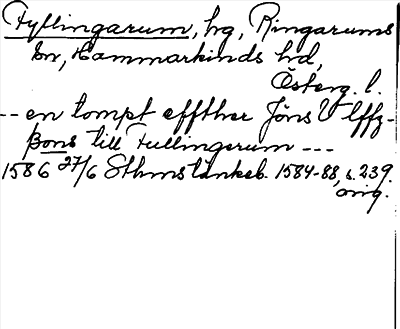 Fyllingarum, hg, Ringarums
sn, Hammarkinds hd,
Österg. l.
-- en tompt effther Jöns Ulffz-
ßons till Fullingerum ---
1586 27/6 Sthms tänkeb. 1584-88, s. 239.
orig.